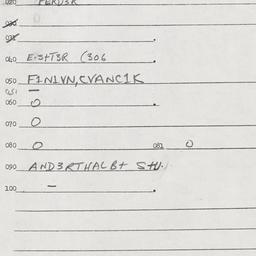 020 FERD3R
030 0
031
040 E·S+T3R (306
050 F1N1VN,CVANC1K
051 —
060 0
070 0
080 0 081 0
090 AND3RTHALB+ S+U.
100 —